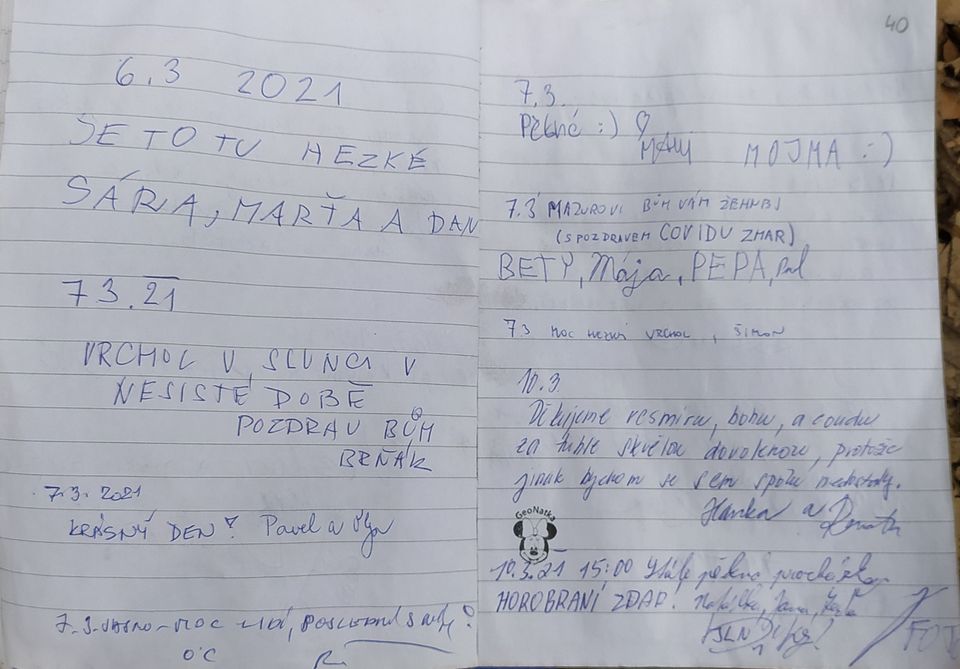 6.3 2021
JE TO TU HEZKÉ
SÁRA, MARŤA A DAN
7 3.21
VRCHOL V SLUNCI V
NESISTÉ DOBĚ
POZDRAV BŮH
BRŇÁK
7.3.2021
KRÁSNÝ DEN! Pavel a
7.3.
0°C
40
7.3.
Pěkné :) ♡
MOJMA :)
7.3 MAZUROVI BŮH VÁM ŽEHNEJ
(S POZDRAVEM COVIDU ZMAR)
BETY, Mája, PEPA,
7.3 MOC HEZKÝ VRCHOL, ŠIMON
10.3
Děkujeme vesmíru, bohu, a covidu
za tuhle skvělou dovolenou, protože
jinak bychom se sem spolu nedostaly.
Hanka a Renata
GeoNatka
10.3.21 15:00 Stále pěkná procházka
HOROBRANÍ ZDAR! Jana,